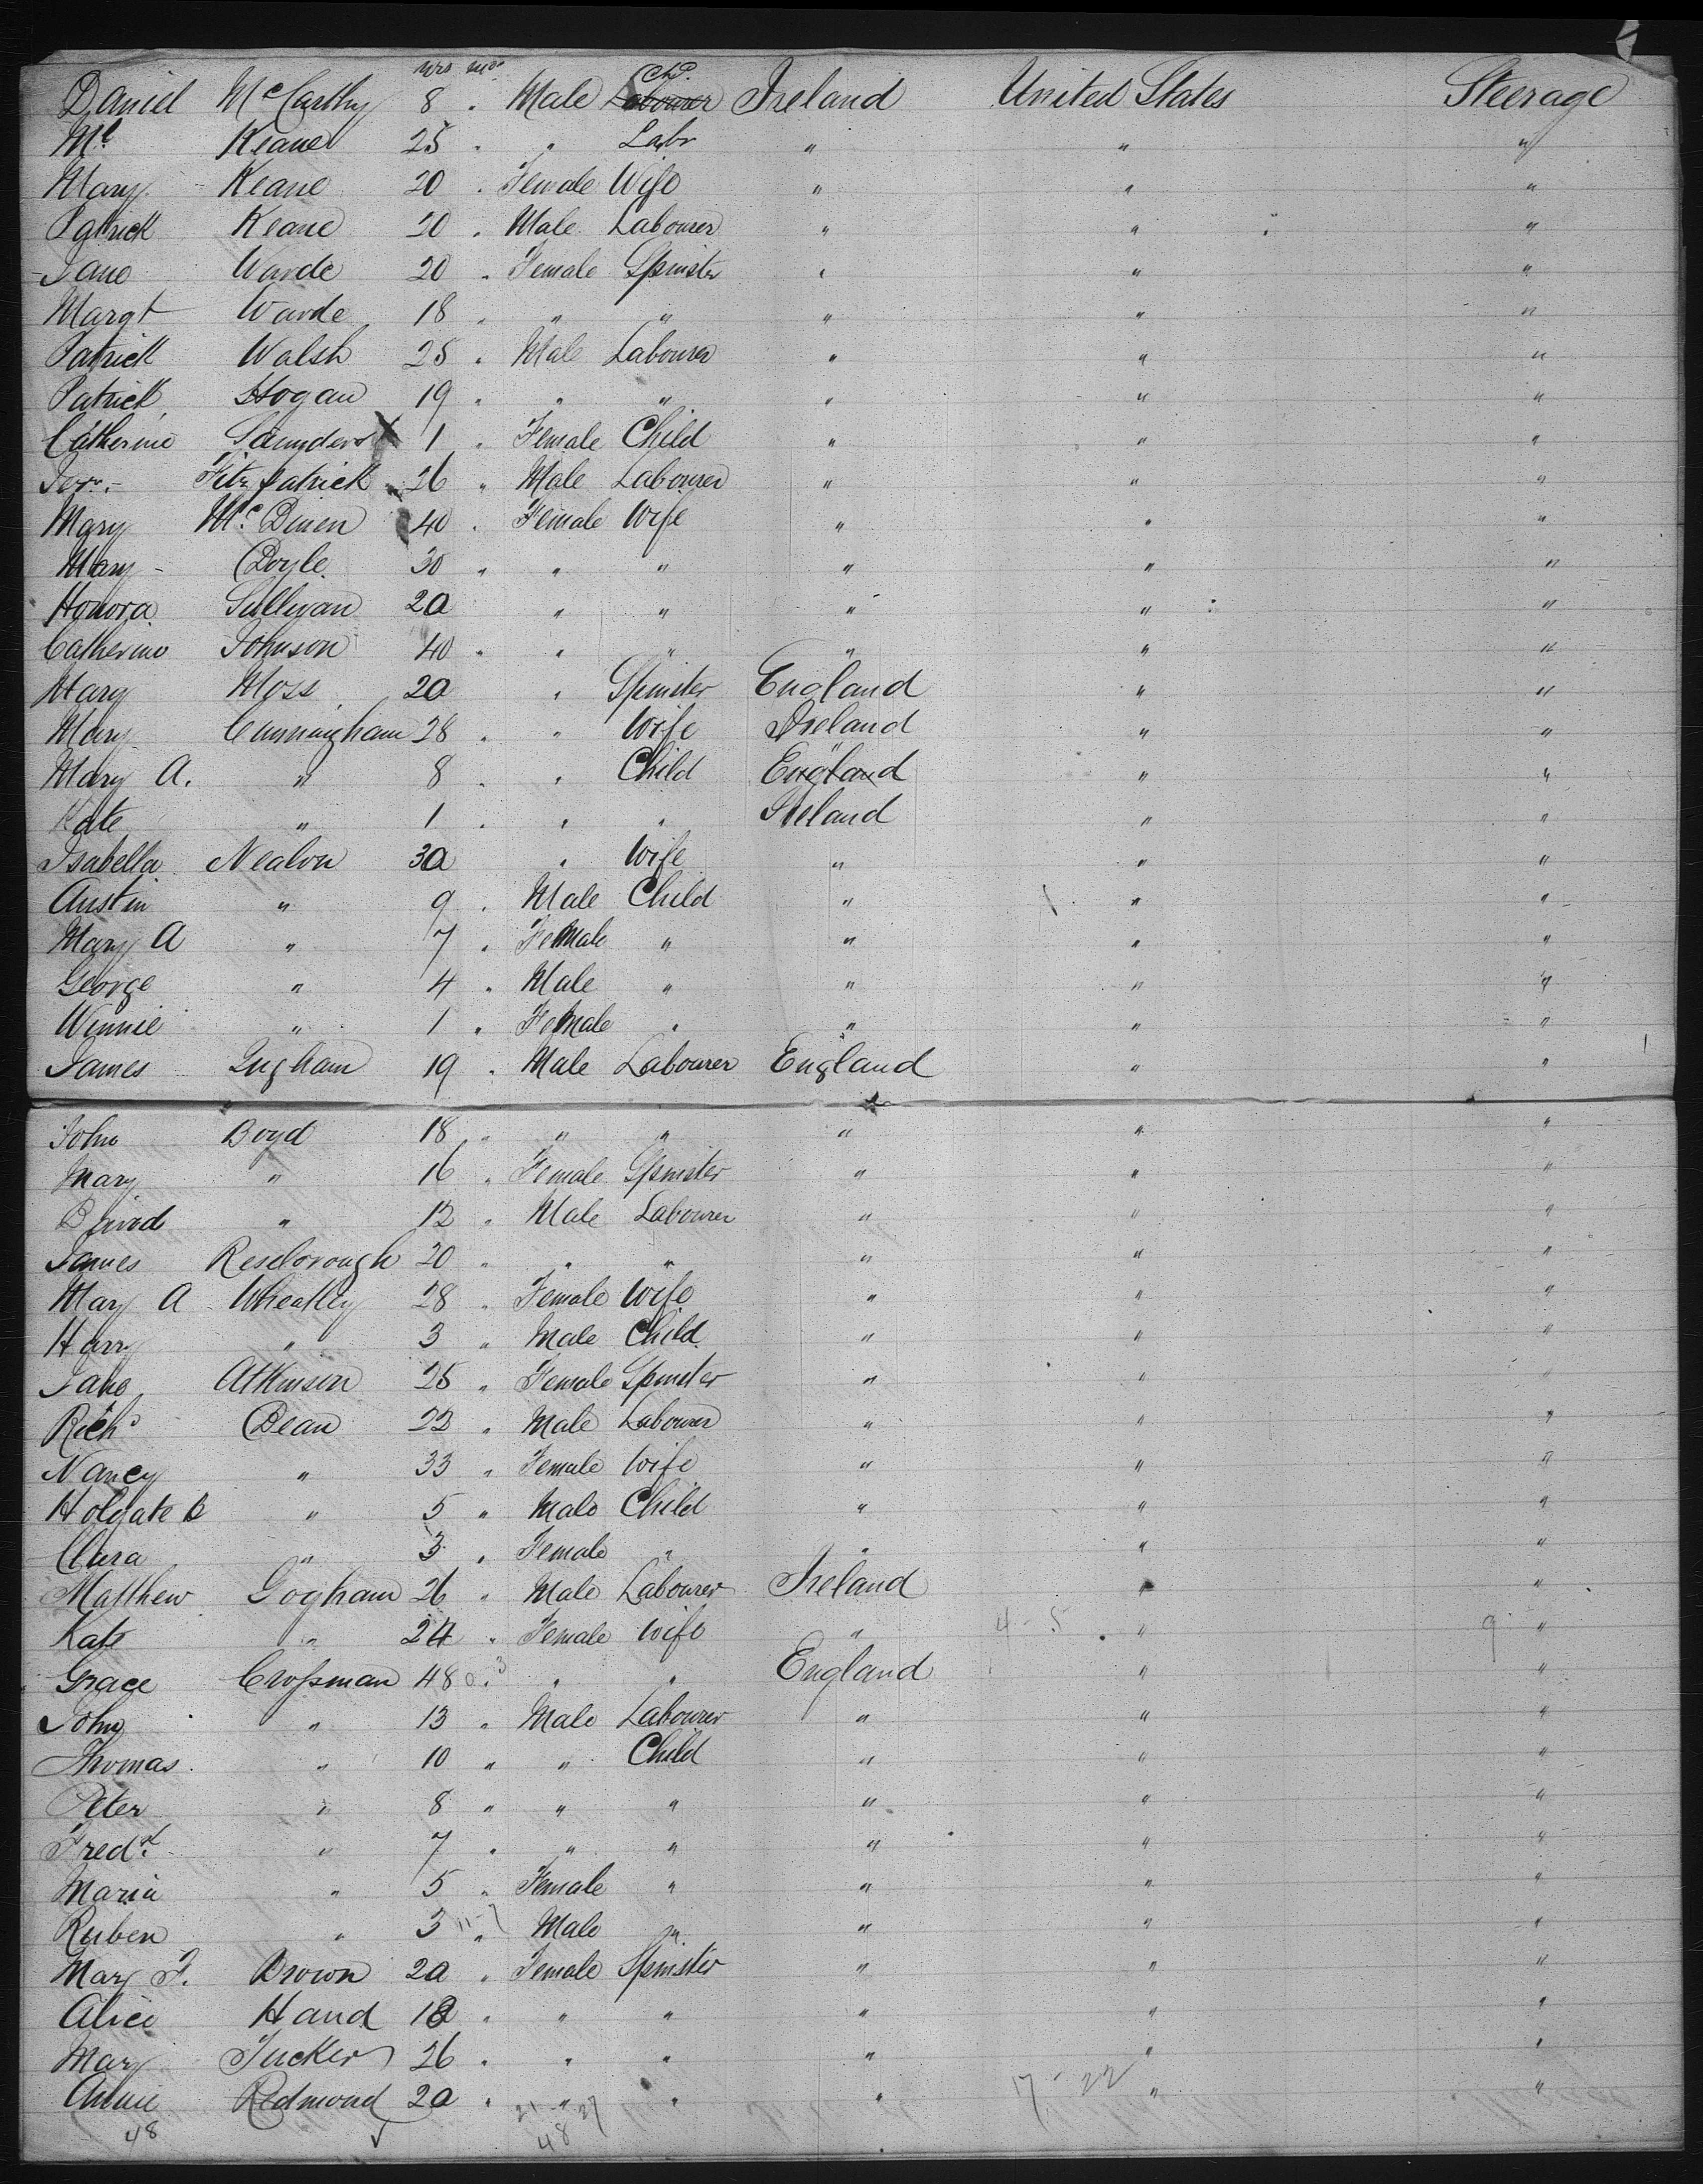 yrs mos
Daniel McCarthy 8 " Male Chd. Labourer Ireland United States Steerage
Ml. Keane 25 " " Labr " " "
Mary Keane 20 " Female Wife " " "
Patrick Keane 20 " Male Labourer " " "
Jane Warde 20 " Female Spinster " " "
Margt Warde 18 " " " " " "
Patrick Walsh 25 " Male Labourer " " "
Patrick Hogan 19 " " " " " "
Catherine Saunders X 1 " Female Child " " "
Fitzpatrick 26 " Male Labourer " " "
Mary Mc 40 " Female Wife " " "
Mary Doyle 30 " " " " " "
Honora Sullivan 20 " " " " "
Catherine Johnson 40 " " " " " "
Mary Moss 20 " Spinster England " "
Mary Cunningham 28 " " Wife Ireland " "
Mary A. " 8 " " Child England " "
Kate " 1 " " " Ireland " "
Isabella Nealon 30 " Wife " " "
Austin " 9 " Male Child " " "
Mary A " 7 " Female " " " "
George " 4 " Male " " " "
Winnie " 1 " Female " " " "
James Ingham 19 " Male Labourer England " "
John Boyd 18 " " " " " "
Mary " 16 " Female Spinster " " "
David " 12 " Male Labourer " " "
James Roseborough 20 " " " " " "
Mary A Wheatley 28 " Female Wife " " "
Harry " 3 " Male Child " " "
Jane Atkinson 25 " Female Spinster " " "
Richd Dean " Male Labourer " " "
Nancy " 33 " Female Wife " " "
Holgate " 5 " Male Child " " "
Clara " 3 " Female " " " "
Matthew Gogham 26 " Male Labourer Ireland " "
Kate " 24 " Female Wife " 4-5 " 9 "
Grace Crossman 48 " " " England " "
John " 13 " Male Labourer " " "
Thomas " 10 " " Child " " "
Peter " 8 " " " " " "
Fredk. " 7 " " " " " "
Maria " 5 " Female " " " "
Ruben " 3 11-7 " Male " " " "
Mary F. Brown 20 " Female Spinster " " "
Alice Hand 18 " " " " " "
Mary Tucker 26 " " " " " "
Annie Redmond 20 " " " " 17-22 " "
48 21 27
48